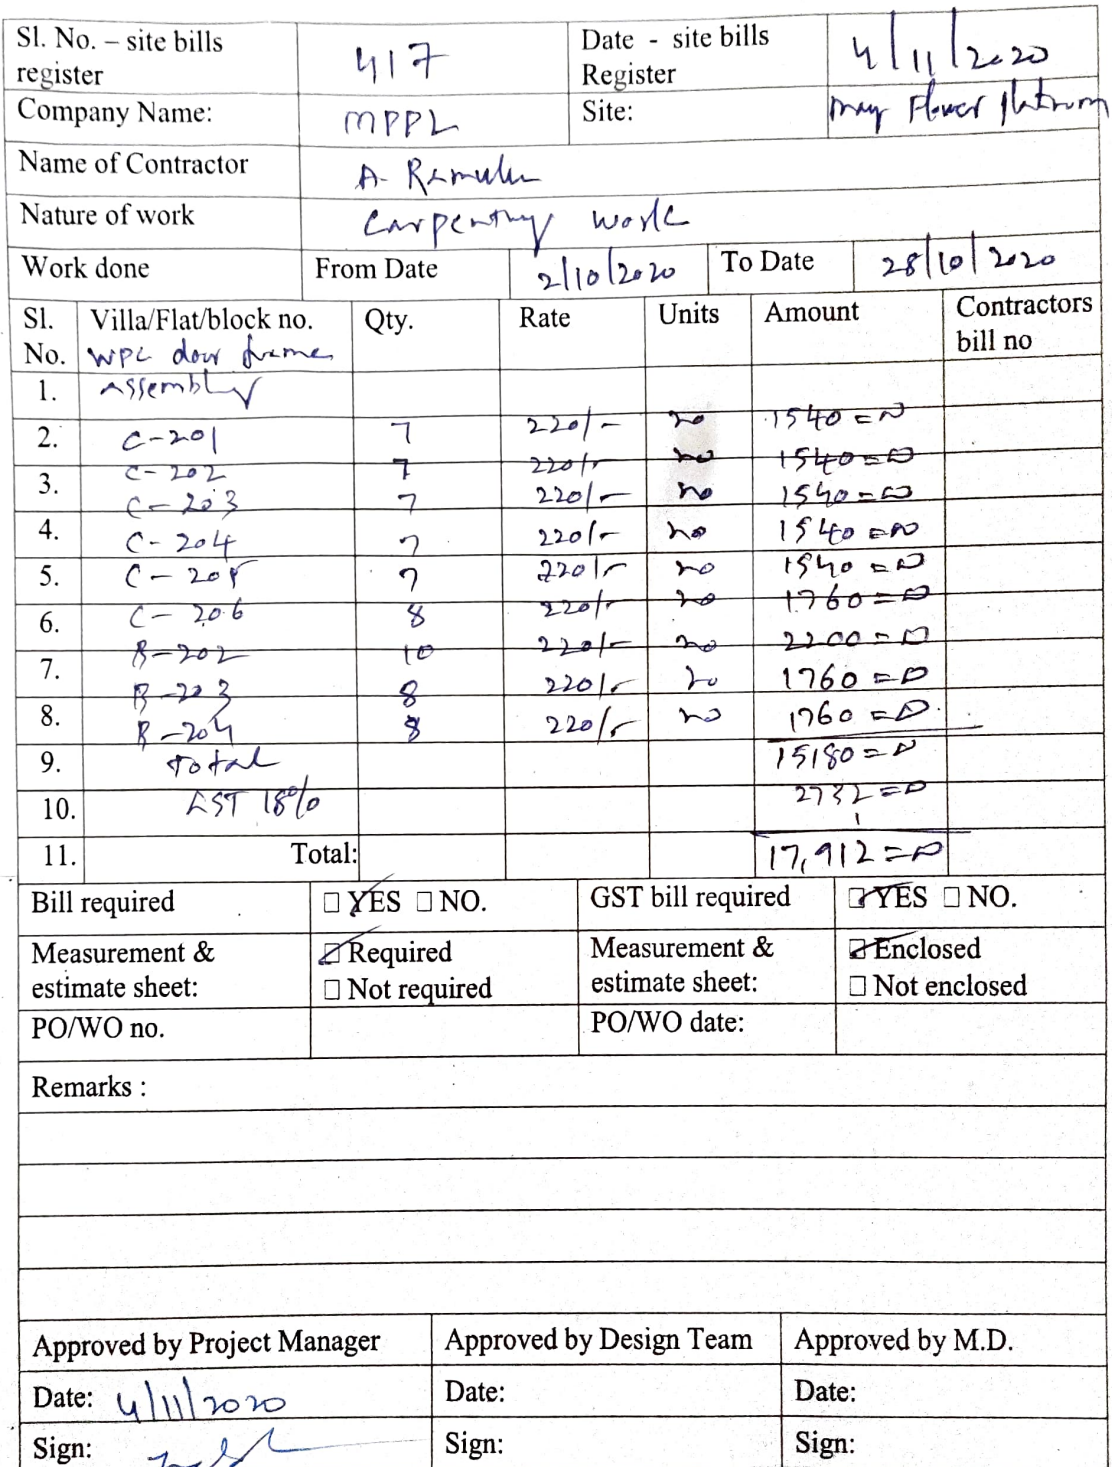 Sl. No. – site bills register 417 Date - site bills Register 4/11/2020
Company Name: MPPL Site: may Flower Platinum
Name of Contractor A. Ramulu
Nature of work Carpentry work
Work done From Date 2/10/2020 To Date 28/10/2020
Sl. No. Villa/Flat/block no. Qty. Rate Units Amount Contractors bill no
WPC door frame
1. Assembly
2. C-201 7 220/- no 1540=00
C-202 7 220/- no 1540=00
3. C-203 7 220/- no 1540=00
4. C-204 7 220/- no 1540=00
5. C-205 7 220/- no 1540=00
6. C-206 8 220/- no 1760=00
B-202 10 220/- no 2200=00
7. B-203 8 220/- no 1760=00
8. B-204 8 220/- no 1760=00
9. Total 15180=00
10. GST 18% 2732=00
11. Total: 17,912=00
Bill required □ YES □ NO. GST bill required ☑ YES □ NO.
Measurement & estimate sheet: ☑ Required □ Not required Measurement & estimate sheet: ☑ Enclosed □ Not enclosed
PO/WO no. PO/WO date:
Remarks :
Approved by Project Manager Approved by Design Team Approved by M.D.
Date: 4/11/2020 Date: Date:
Sign: Sign: Sign: